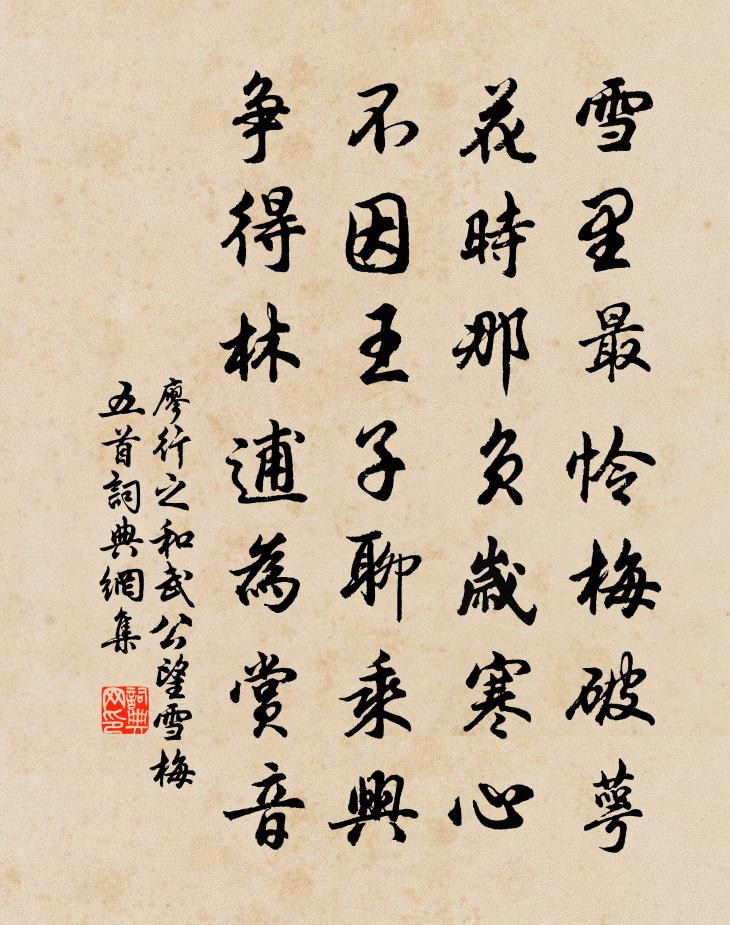 雪里最怜梅破萼
花時那負歲寒心
不因王子聊乘興
争得林逋為賞音
廖行之和武公望雪梅
五首詞典網集
詞典网印